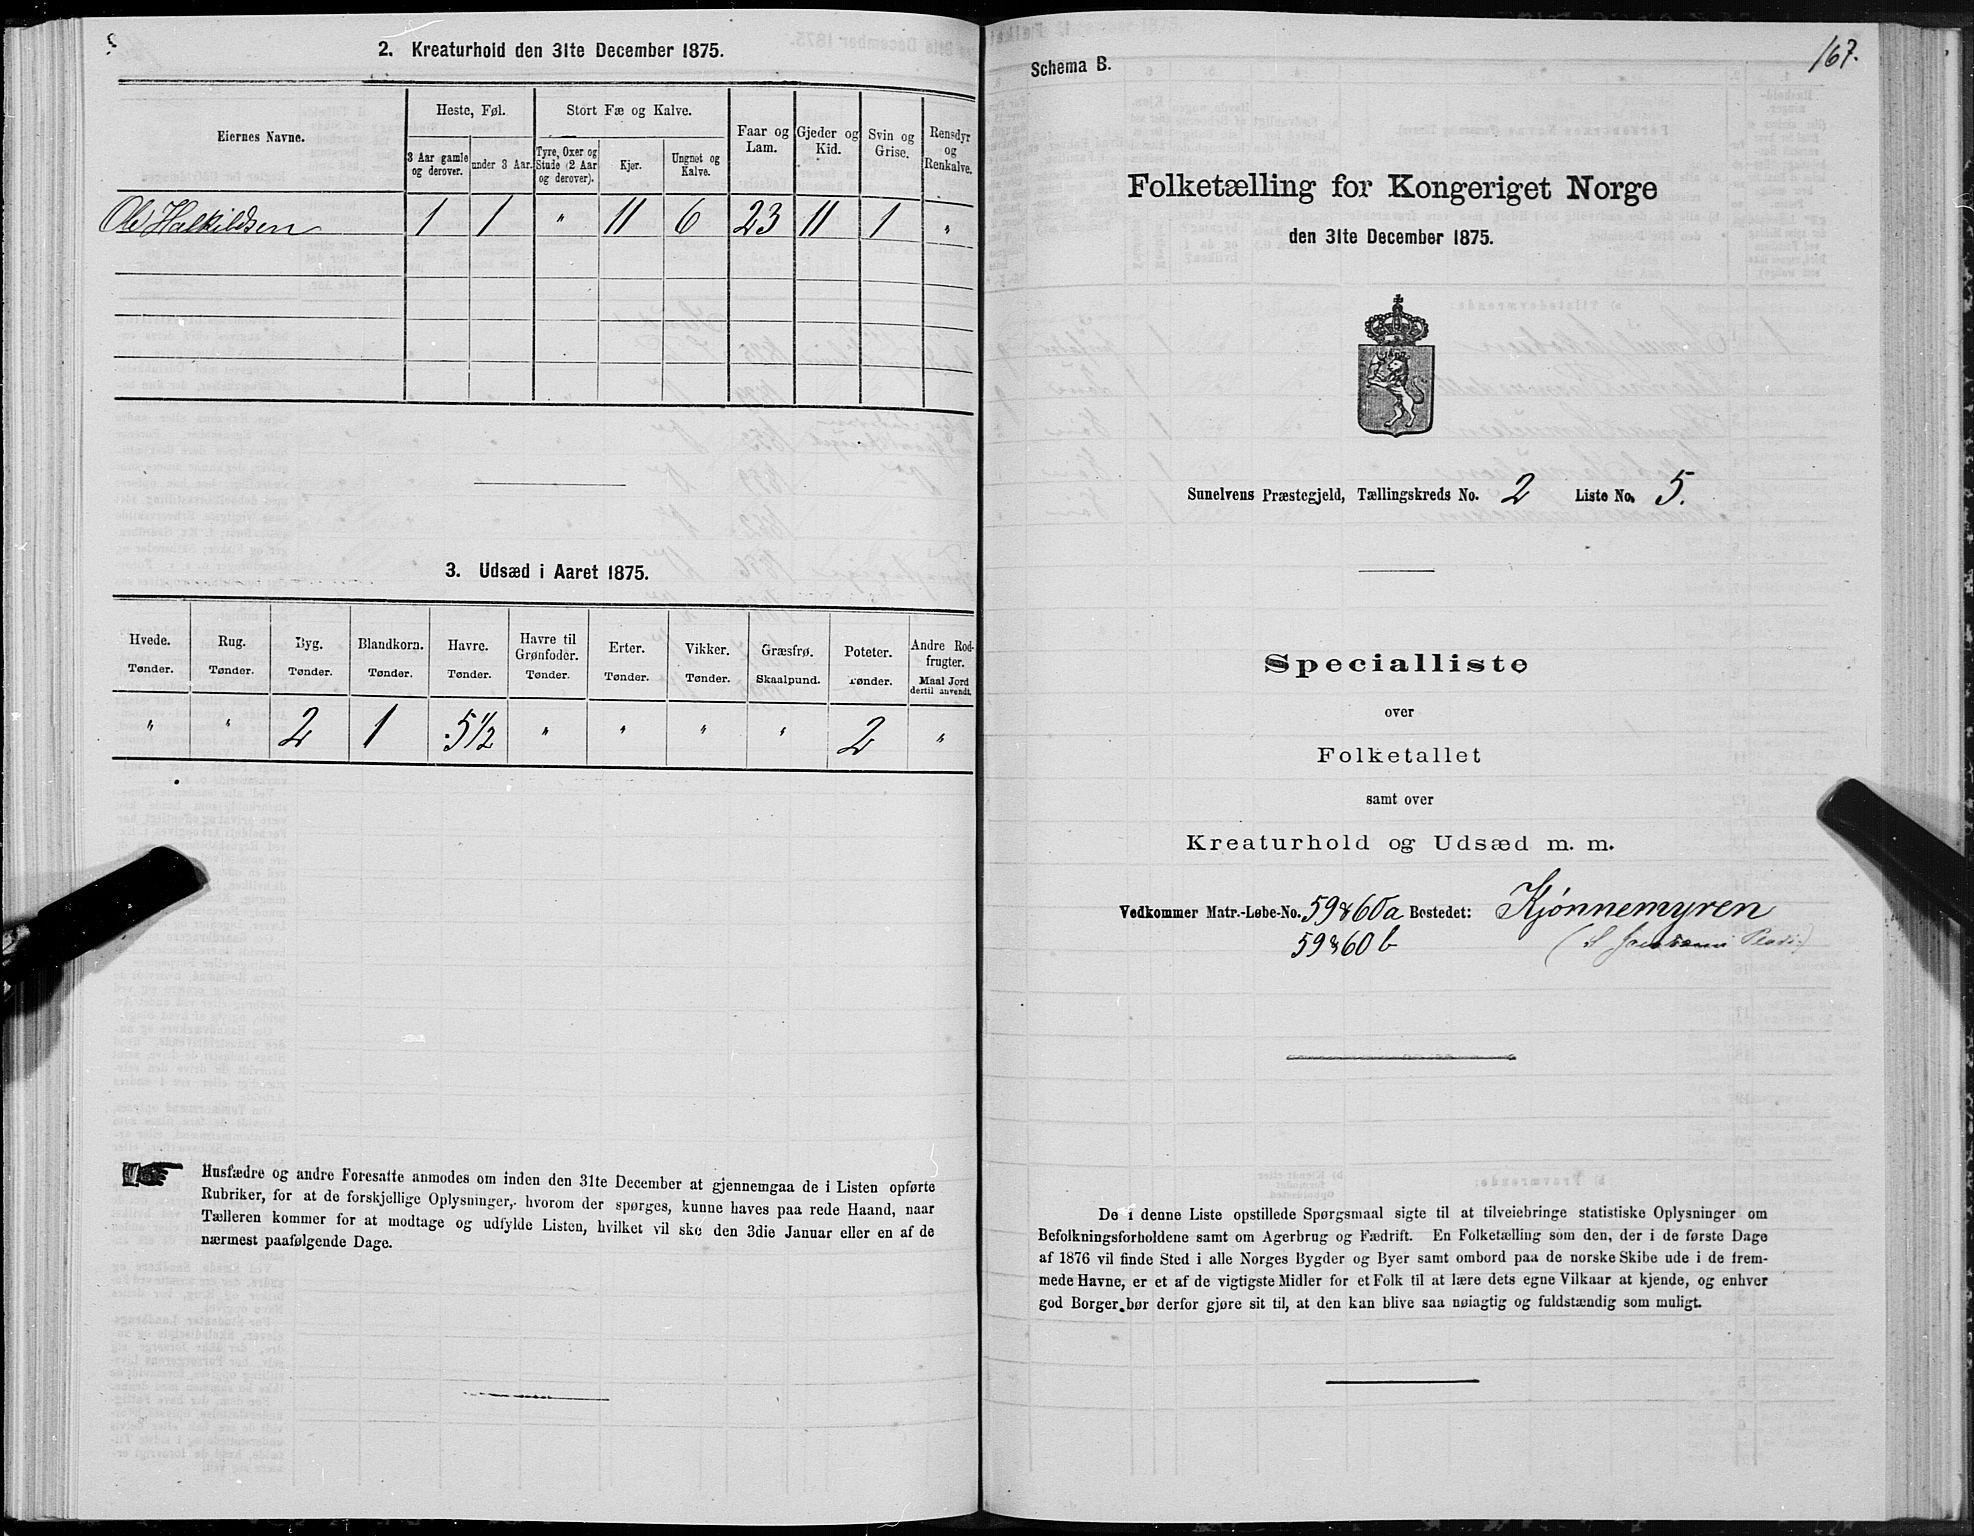 2. Kreaturhold den 31te December 1875.
Eiernes Navne.
Heste, Føl.
Stort Fæ og Kalve.
Faar og Lam.
Gjeder og Kid.
Svin og Grise.
Rensdyr og Renkalve.
3 Aar gamle og derover.
under 3 Aar.
Tyre, Oxer og Stude (2 Aar og derover).
Kjør.
Ungnøt og Kalve.
Ole Halkildsen 1 1 " 11 6 23 11 1 "
3. Udsæd i Aaret 1875.
Hvede. Rug. Byg. Blandkorn. Havre. Havre til Grønfoder. Erter. Vikker. Græsfrø. Poteter. Andre Rodfrugter.
Tønder. Tønder. Tønder. Tønder. Tønder. Tønder. Tønder. Tønder. Skaalpund. Tønder. Maal Jord dertil anvendt.
" " 2 1 5 1/2 " " " " 2 "
Husfædre og andre Foresatte anmodes om inden den 31te December at gjennemgaa de i Listen opførte
Rubriker, for at de forskjellige Oplysninger, hvorom der spørges, kunne haves paa rede Haand, naar
Tælleren kommer for at modtage og udfylde Listen, hvilket vil ske den 3die Januar eller en af de
nærmest paafølgende Dage.
Schema B.
167.
Folketælling for Kongeriget Norge
den 31te December 1875.
Sunelvens Præstegjeld, Tællingskreds No. 2 Liste No. 5.
Specialliste
over
Folketallet
samt over
Kreaturhold og Udsæd m. m.
Vedkommer Matr.-Løbe-No. 59 & 60 a Bostedet: Kjønnemyren
59 & 60 b
De i denne Liste opstillede Spørgsmaal sigte til at tilveiebringe statistiske Oplysninger om
Befolkningsforholdene samt om Agerbrug og Fædrift. En Folketælling som den, der i de første Dage
af 1876 vil finde Sted i alle Norges Bygder og Byer samt ombord paa de norske Skibe ude i de frem-
mede Havne, er et af de vigtigste Midler for et Folk til at lære dets egne Vilkaar at kjende, og enhver
god Borger bør derfor gjøre sit til, at den kan blive saa nøiagtig og fuldstændig som muligt.